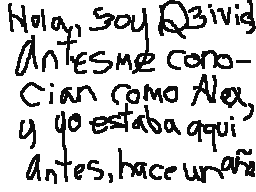 Hola, soy D3ivid
Antes me cono-
cian como Alex,
y yo estaba aqui
antes, hace un año